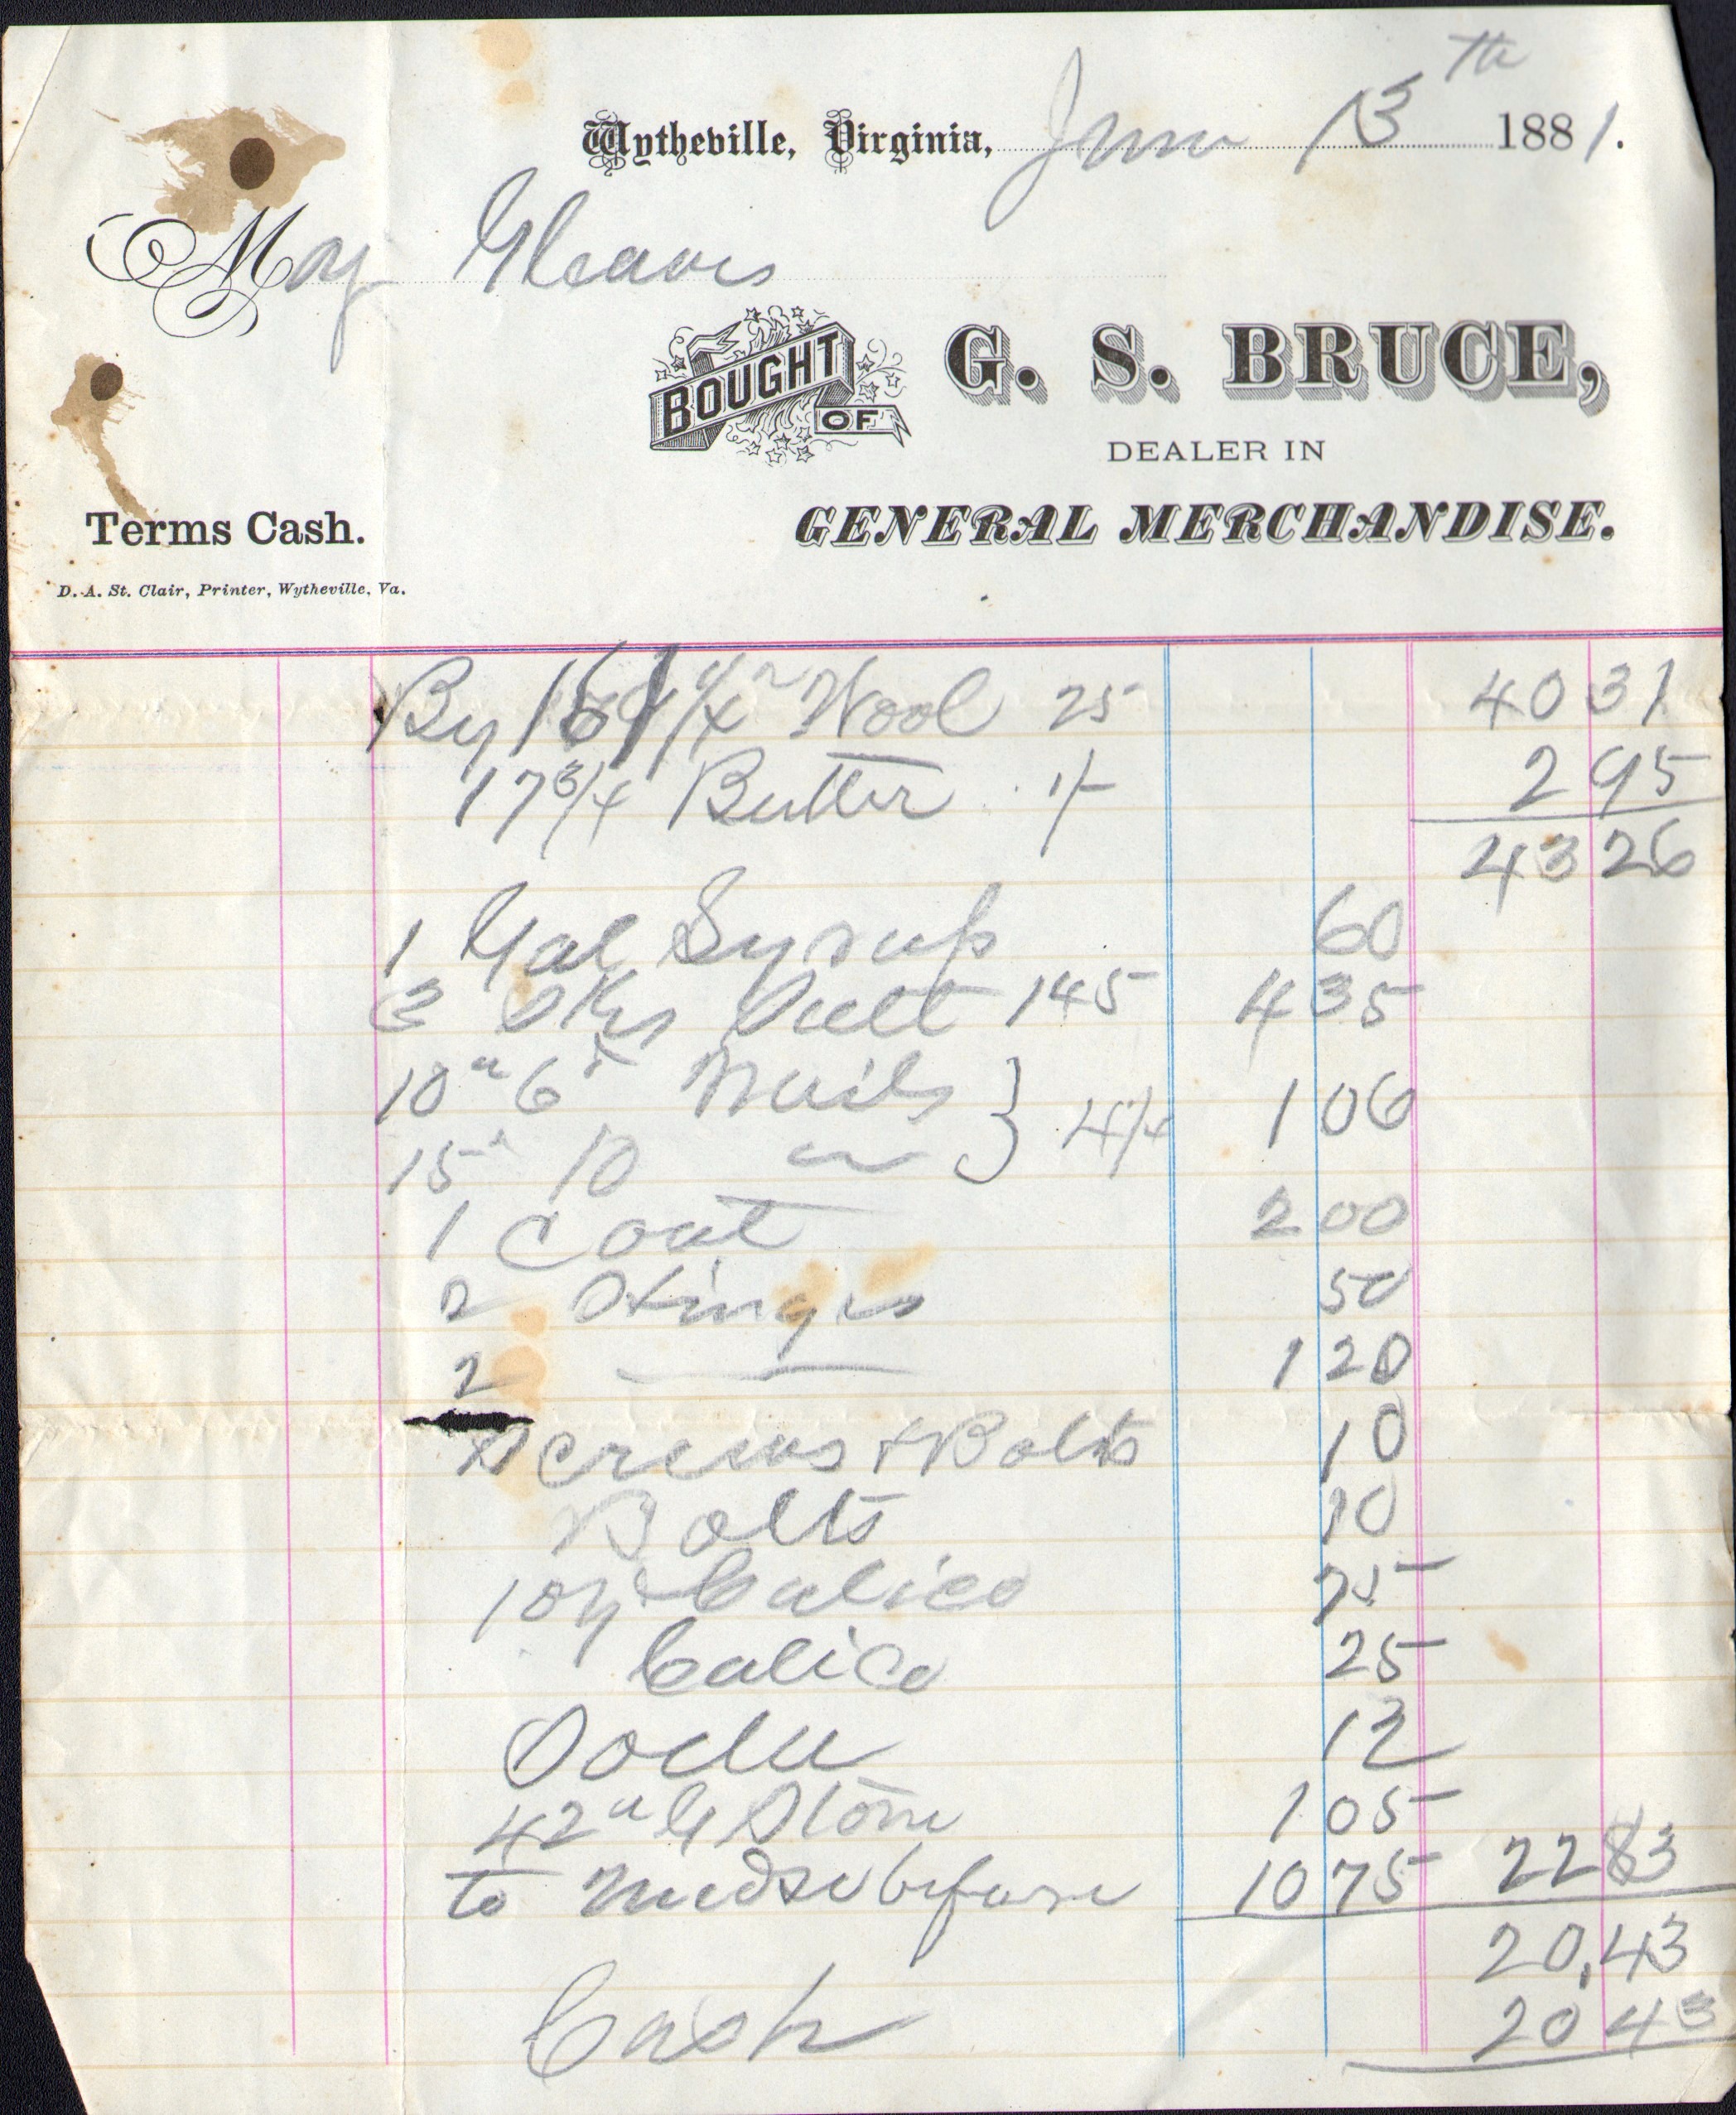 Wytheville, Virginia, June 13th 1881.
Maj Gleaves
BOUGHT OF G. S. BRUCE,
DEALER IN
Terms Cash. GENERAL MERCHANDISE.
D. A. St. Clair, Printer, Wytheville, Va.
By 161 1/4 " Wool 25 40 31
17 3/4 Butter 1/- 2 95
43 26
1 Gal Syrup 60
3 Sks Salt 145 4 35
10 " 6 Nails } 4 1/4 1 06
15 " 10 "
1 Coat 2 00
2 Hinges 50
2 — 1 20
Screws & Bolts 10
Bolts 10
10 yd Calico 75
Calico 25
Soda 12
42 " G Stone 1 05
to Mdse before 10 75 22 83
20,43
Cash 20 43